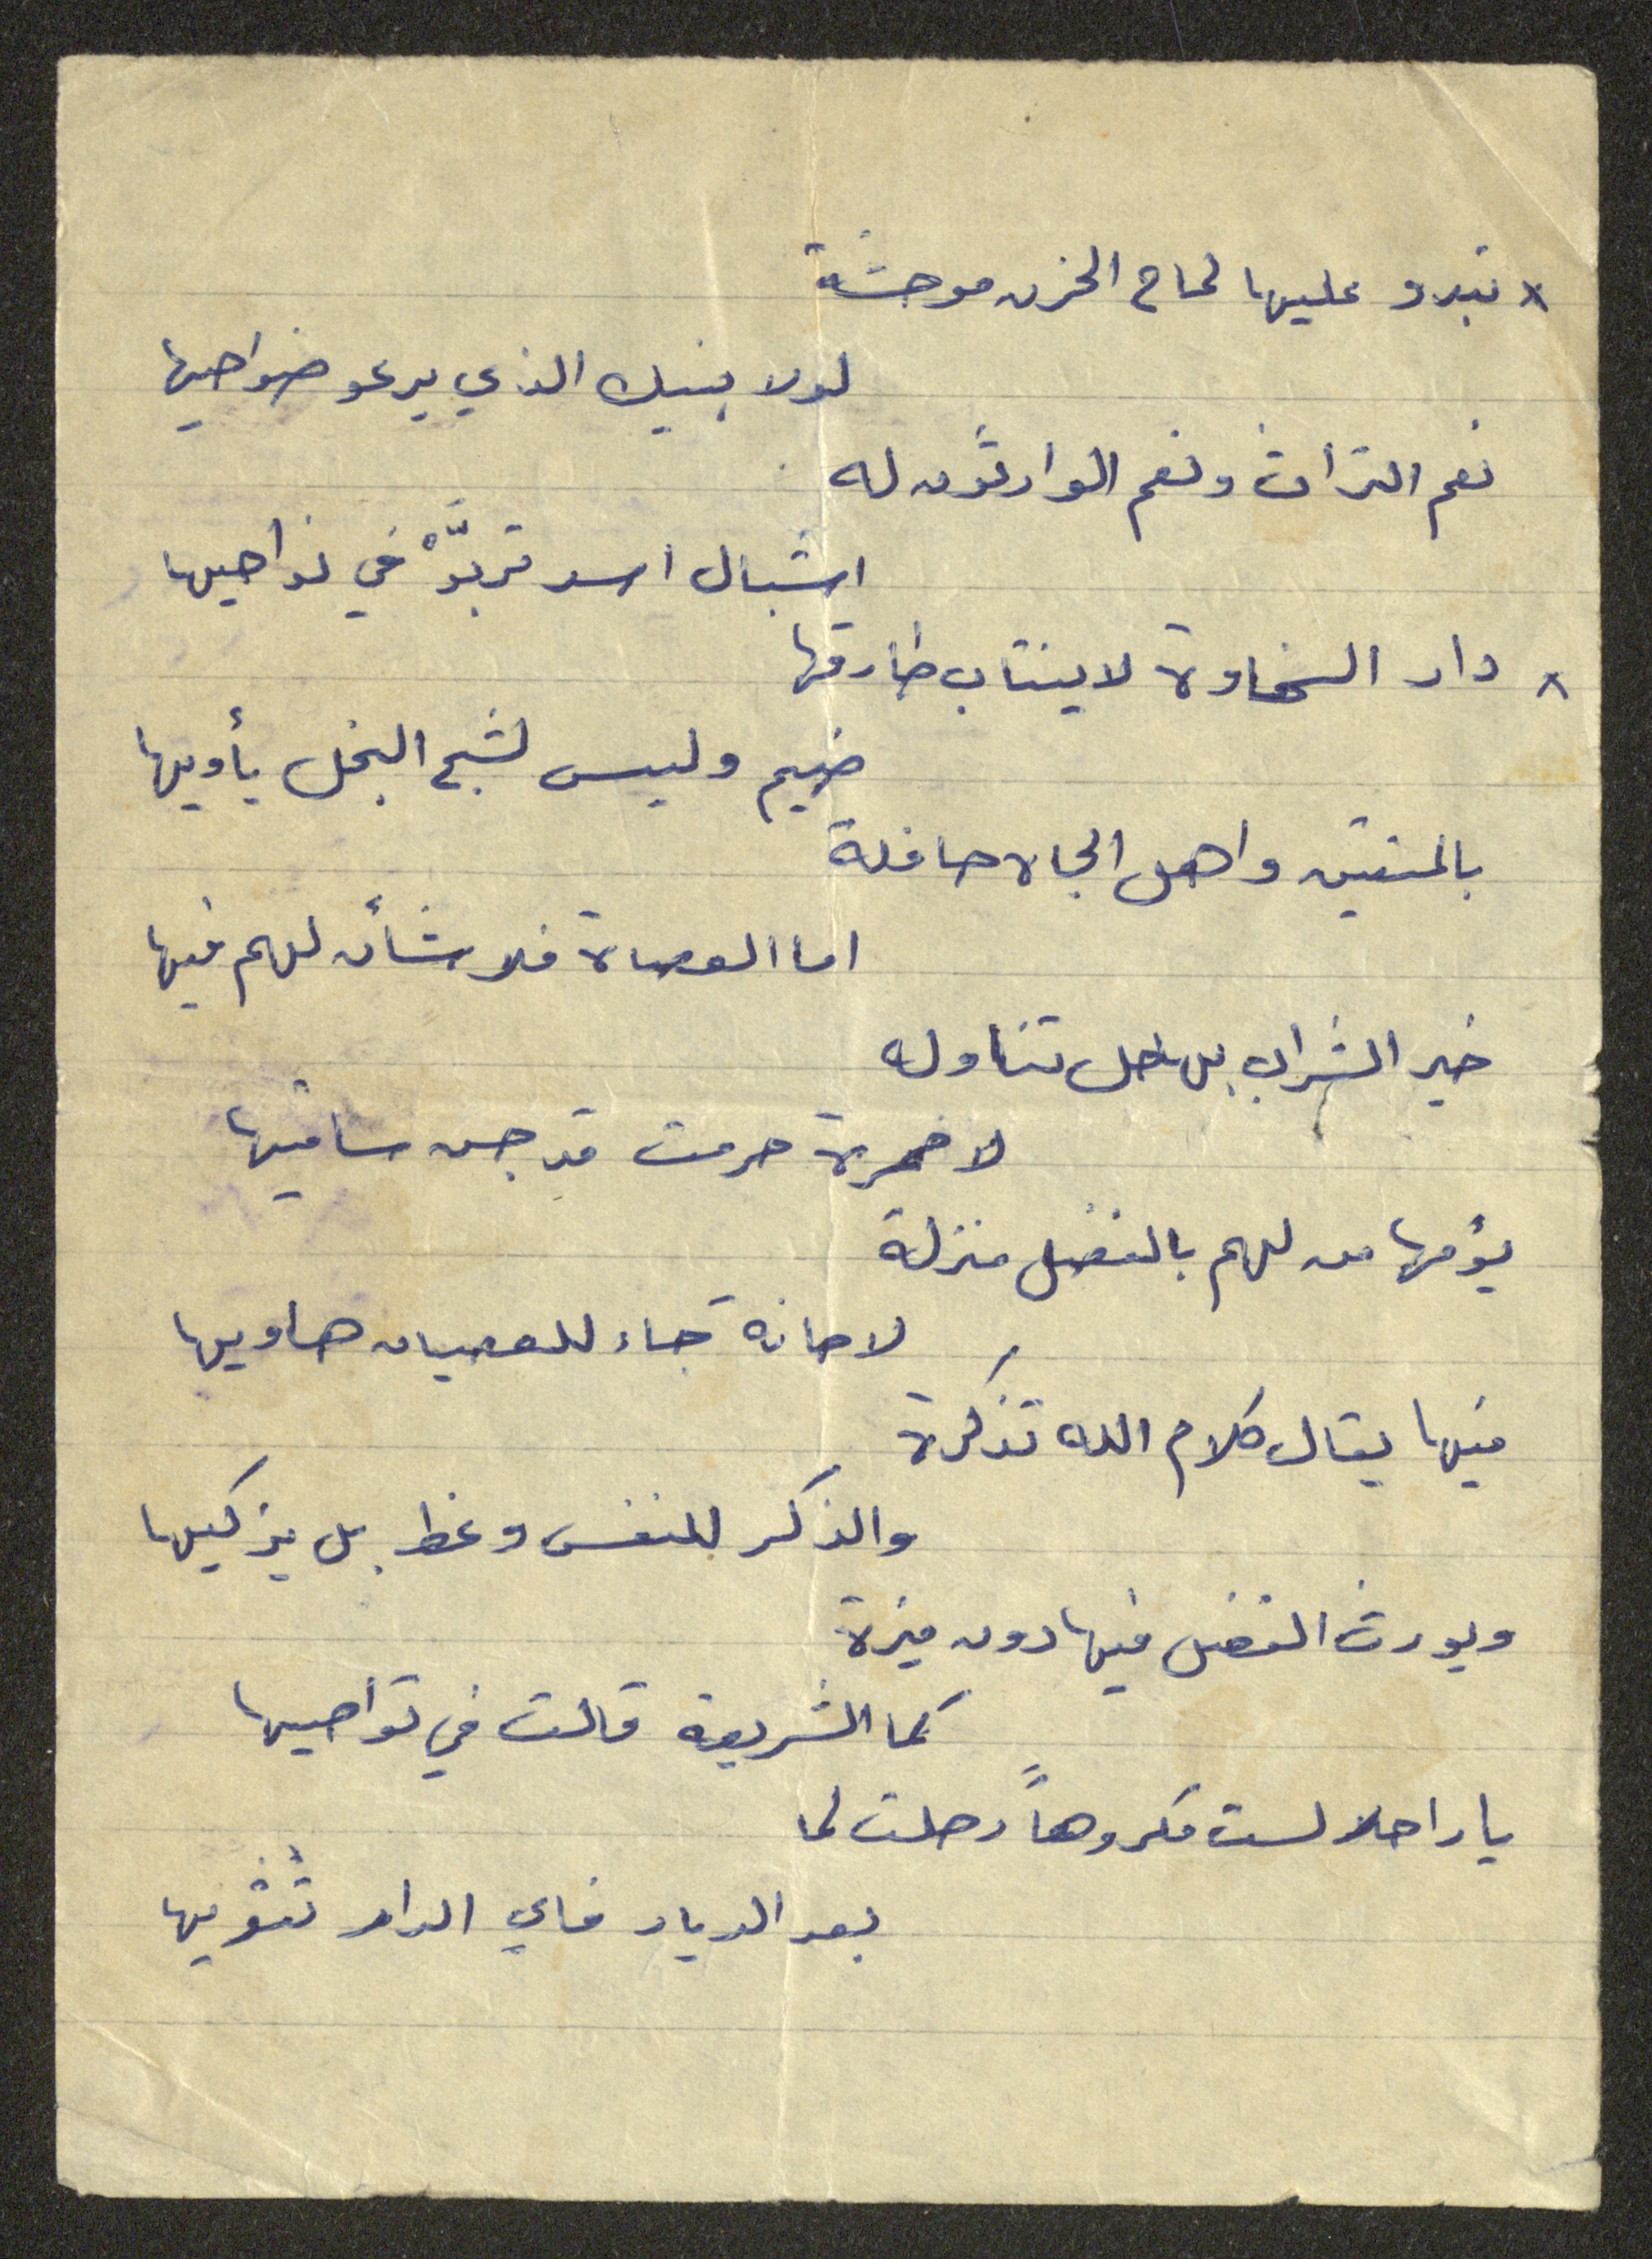 × تبدو عليها لحاح الحزن موحشة
لولا بنيك الذي يرعو ضواحيها
نعم التراث ونعم الوارثون له
اشبال اسد تربَّوْ في نواحيها
× دار السخاوة لا ينتاب طارقها
ضيم وليس لشبح البخل يأويها
بالمتقين واهل الجاه حافلة
اما العصاة فلا شأن لهم فيها
خير الشراب بها حل تناوله
لا خمرة حرمت قد جس ساقيها
يؤمها من لهم بالفضل منزلة
لا حانة جاء للعصيان هاويها
فيها يقال كلام الله تذكرة
والذكر للنفس وعظ بل يزكيها
ويورث الفضل فيها دون ميزة
كما الشريعة قالت في تواصيها
يا راحلا لست مكروهاً رحلت لما
بعد الديار فاي الدار تثويها